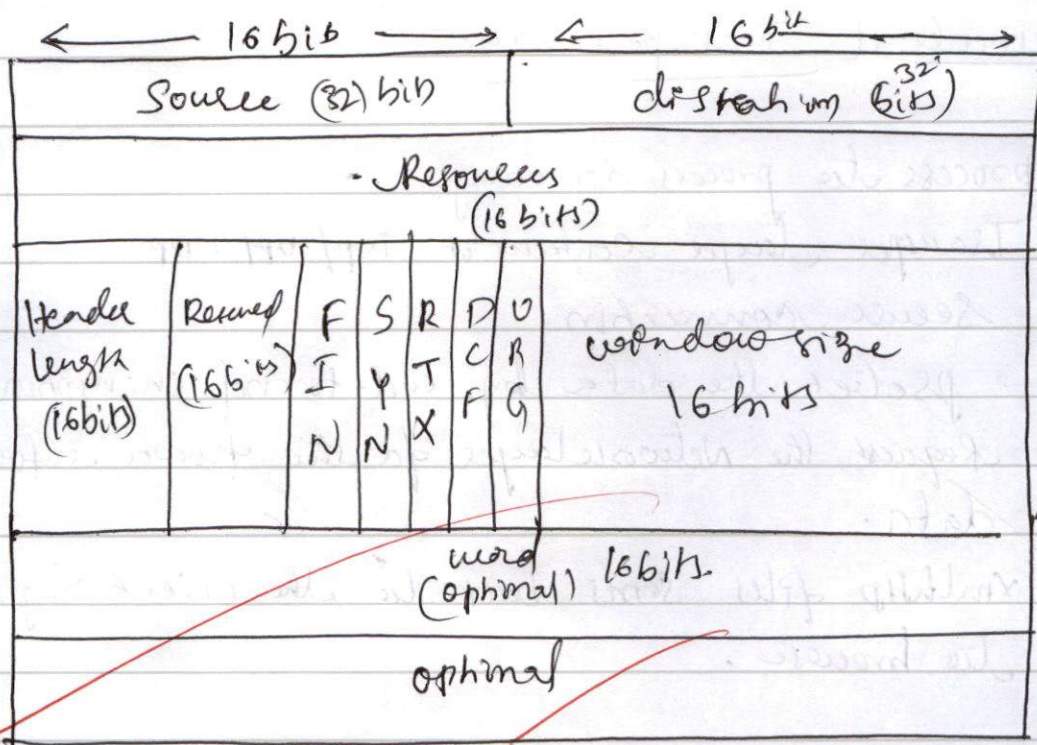 16 bits 16 bit
Source (32) bits distration (32 bits)
Resources
(16 bits)
Header length (16 bits)
Reserved (16 bits)
FIN
SYN
RTX
DCF
URG
window size
16 bits
word
(optimal) 16 bits.
optimal